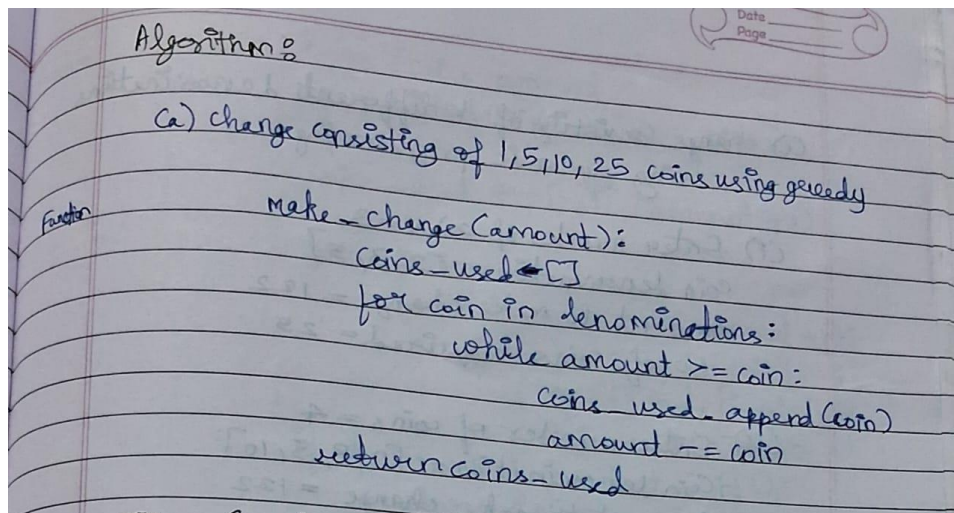 Date
Page
Algorithm:
(a) change consisting of 1,5,10, 25 coins using greedy
Function make_change (amount):
coins_used ← []
for coin in denominations:
while amount >= coin:
coins_used.append(coin)
amount -= coin
return coins_used